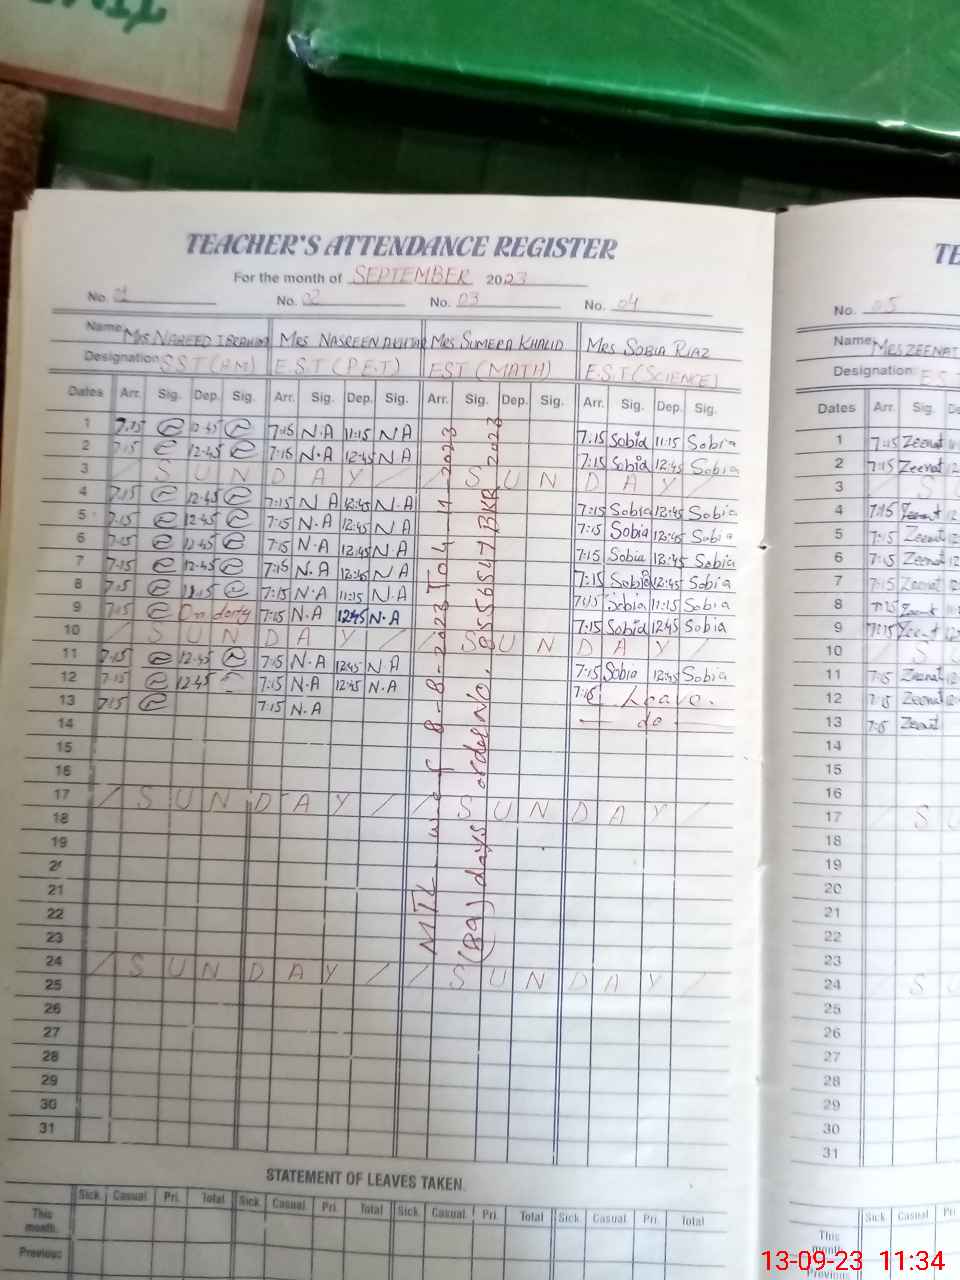 TEACHER'S ATTENDANCE REGISTER
For the month of SEPTEMBER 2023
No. 01 No. 02 No. 03 No. 04
Name Mrs NAHEED IBRAHIM Mrs NASREEN AKHTAR Mrs SUMERA KHALID Mrs SOBIA RIAZ
Designation SST (HM) E.S.T (P.E.T) EST (MATH) E.S.T (SCIENCE)
Dates Arr. Sig. Dep. Sig. Arr. Sig. Dep. Sig. Arr. Sig. Dep. Sig. Arr. Sig. Dep. Sig.
1 7:15 12:45 7:15 N.A 11:15 N A 7:15 Sobia 11:15 Sobia
2 7:15 12:45 7:15 N.A 12:45 N A 7:15 Sobia 12:45 Sobia
3 / S U N D A Y / / S U N D A Y /
4 7:15 12:45 7:15 N A 12:45 N.A 7:15 Sobia 12:45 Sobia
5 7:15 12:45 7:15 N.A 12:45 N A 7:15 Sobia 12:45 Sobia
6 7:15 12:45 7:15 N.A 12:45 N A 7:15 Sobia 12:45 Sobia
7 7:15 12:45 7:15 N.A 12:45 N A 7:15 Sobia 12:45 Sobia
8 7:15 11:15 7:15 N.A 11:15 N.A 7:15 Sobia 11:15 Sobia
9 7:15 On duty 7:15 N.A 12:45 N.A 7:15 Sobia 12:45 Sobia
10 / S U N D A Y / / S U N D A Y /
11 7:15 12:45 7:15 N.A 12:45 N.A 7:15 Sobia 12:45 Sobia
12 7:15 12:45 7:15 N.A 12:45 N.A 7:15 Leave.
13 7:15 7:15 N.A do
14
15
16
17 / S U N D A Y / / S U N D A Y /
18
19
21
22
23
24 / S U N D A Y / / S U N D A Y /
25
26
27
28
29
30
31
w.e.f 8-8-2023 To 4-11-2023
(89) days order No. 8555654 BKR 2023
STATEMENT OF LEAVES TAKEN.
Sick. Casual. Pri. Total Sick. Casual. Pri. Total Sick. Casual. Pri. Total Sick. Casual. Pri. Total
This month.
Previous
TE
No. 05
Name Mrs ZEENAT
Designation E.S.T
Dates Arr. Sig. De
1 7:15 Zeenat 11
2 7:15 Zeenat 12
3 / S U
4 7:15 Zeenat 12
5 7:15 Zeenat 12
6 7:15 Zeenat 12
7 7:15 Zeenat 12
8 7:15 Zeenat 11
9 7:15 Zeenat 12
10 / S U
11 7:15 Zeenat 12
12 7:15 Zeenat 12
13 7:15 Zeenat
14
15
16
17 / S U
18
19
20
21
22
23
24 / S U
25
26
27
28
29
30
31
Sick Casual Pri
This month.
Previous
13-09-23 11:34